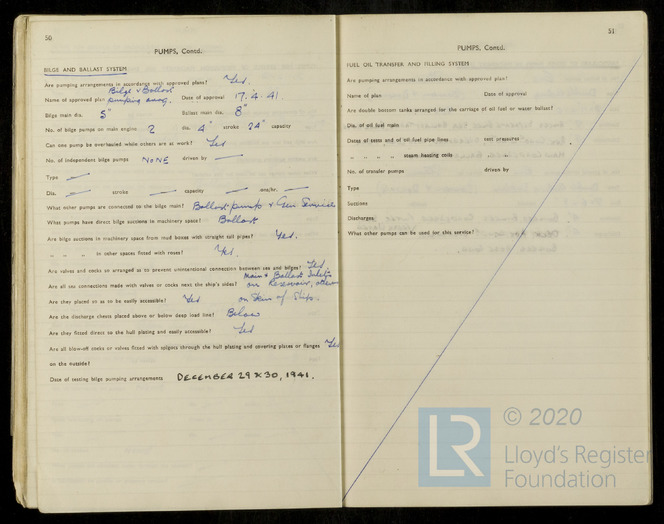 50
PUMPS, Contd.
BILGE AND BALLAST SYSTEM
Are pumping arrangements in accordance with approved plans? Yes.
Bilge & Ballast
Name of approved plan pumping arrg. Date of approval 17.4.41.
Bilge main dia. 5" Ballast main dia. 8"
No. of bilge pumps on main engine 2 dia. 4" stroke 24" capacity
Can one pump be overhauled while others are at work? Yes
No. of independent bilge pumps NONE driven by
Type
Dia. stroke capacity tons/hr.
What other pumps are connected to the bilge main? Ballast pump & Gen Service
What pumps have direct bilge suctions in machinery space? Ballast
Are bilge suctions in machinery space from mud boxes with straight tail pipes? Yes.
" " " in other spaces fitted with roses? Yes.
Are valves and cocks so arranged as to prevent unintentional connection between sea and bilges? Yes.
Main & Ballast Inlets
Are all sea connections made with valves or cocks next the ship's sides? on Reservoir, others
Are they placed so as to be easily accessible? Yes on Skin of Ship.
Are the discharge chests placed above or below deep load line? Below
Are they fitted direct to the hull plating and easily accessible? Yes
Are all blow-off cocks or valves fitted with spigots through the hull plating and covering plates or flanges Yes
on the outside?
Date of testing bilge pumping arrangements DECEMBER 29 & 30, 1941.
51
PUMPS, Contd.
FUEL OIL TRANSFER AND FILLING SYSTEM
Are pumping arrangements in accordance with approved plan?
Name of plan Date of approval
Are double bottom tanks arranged for the carriage of oil fuel or water ballast?
Dia. of oil fuel main
Dates of tests and of oil fuel pipe lines test pressures
" " " " steam heating coils " "
No. of transfer pumps driven by
Type
Suctions
Discharges
What other pumps can be used for this service?
LR © 2020
Lloyd's Register
Foundation